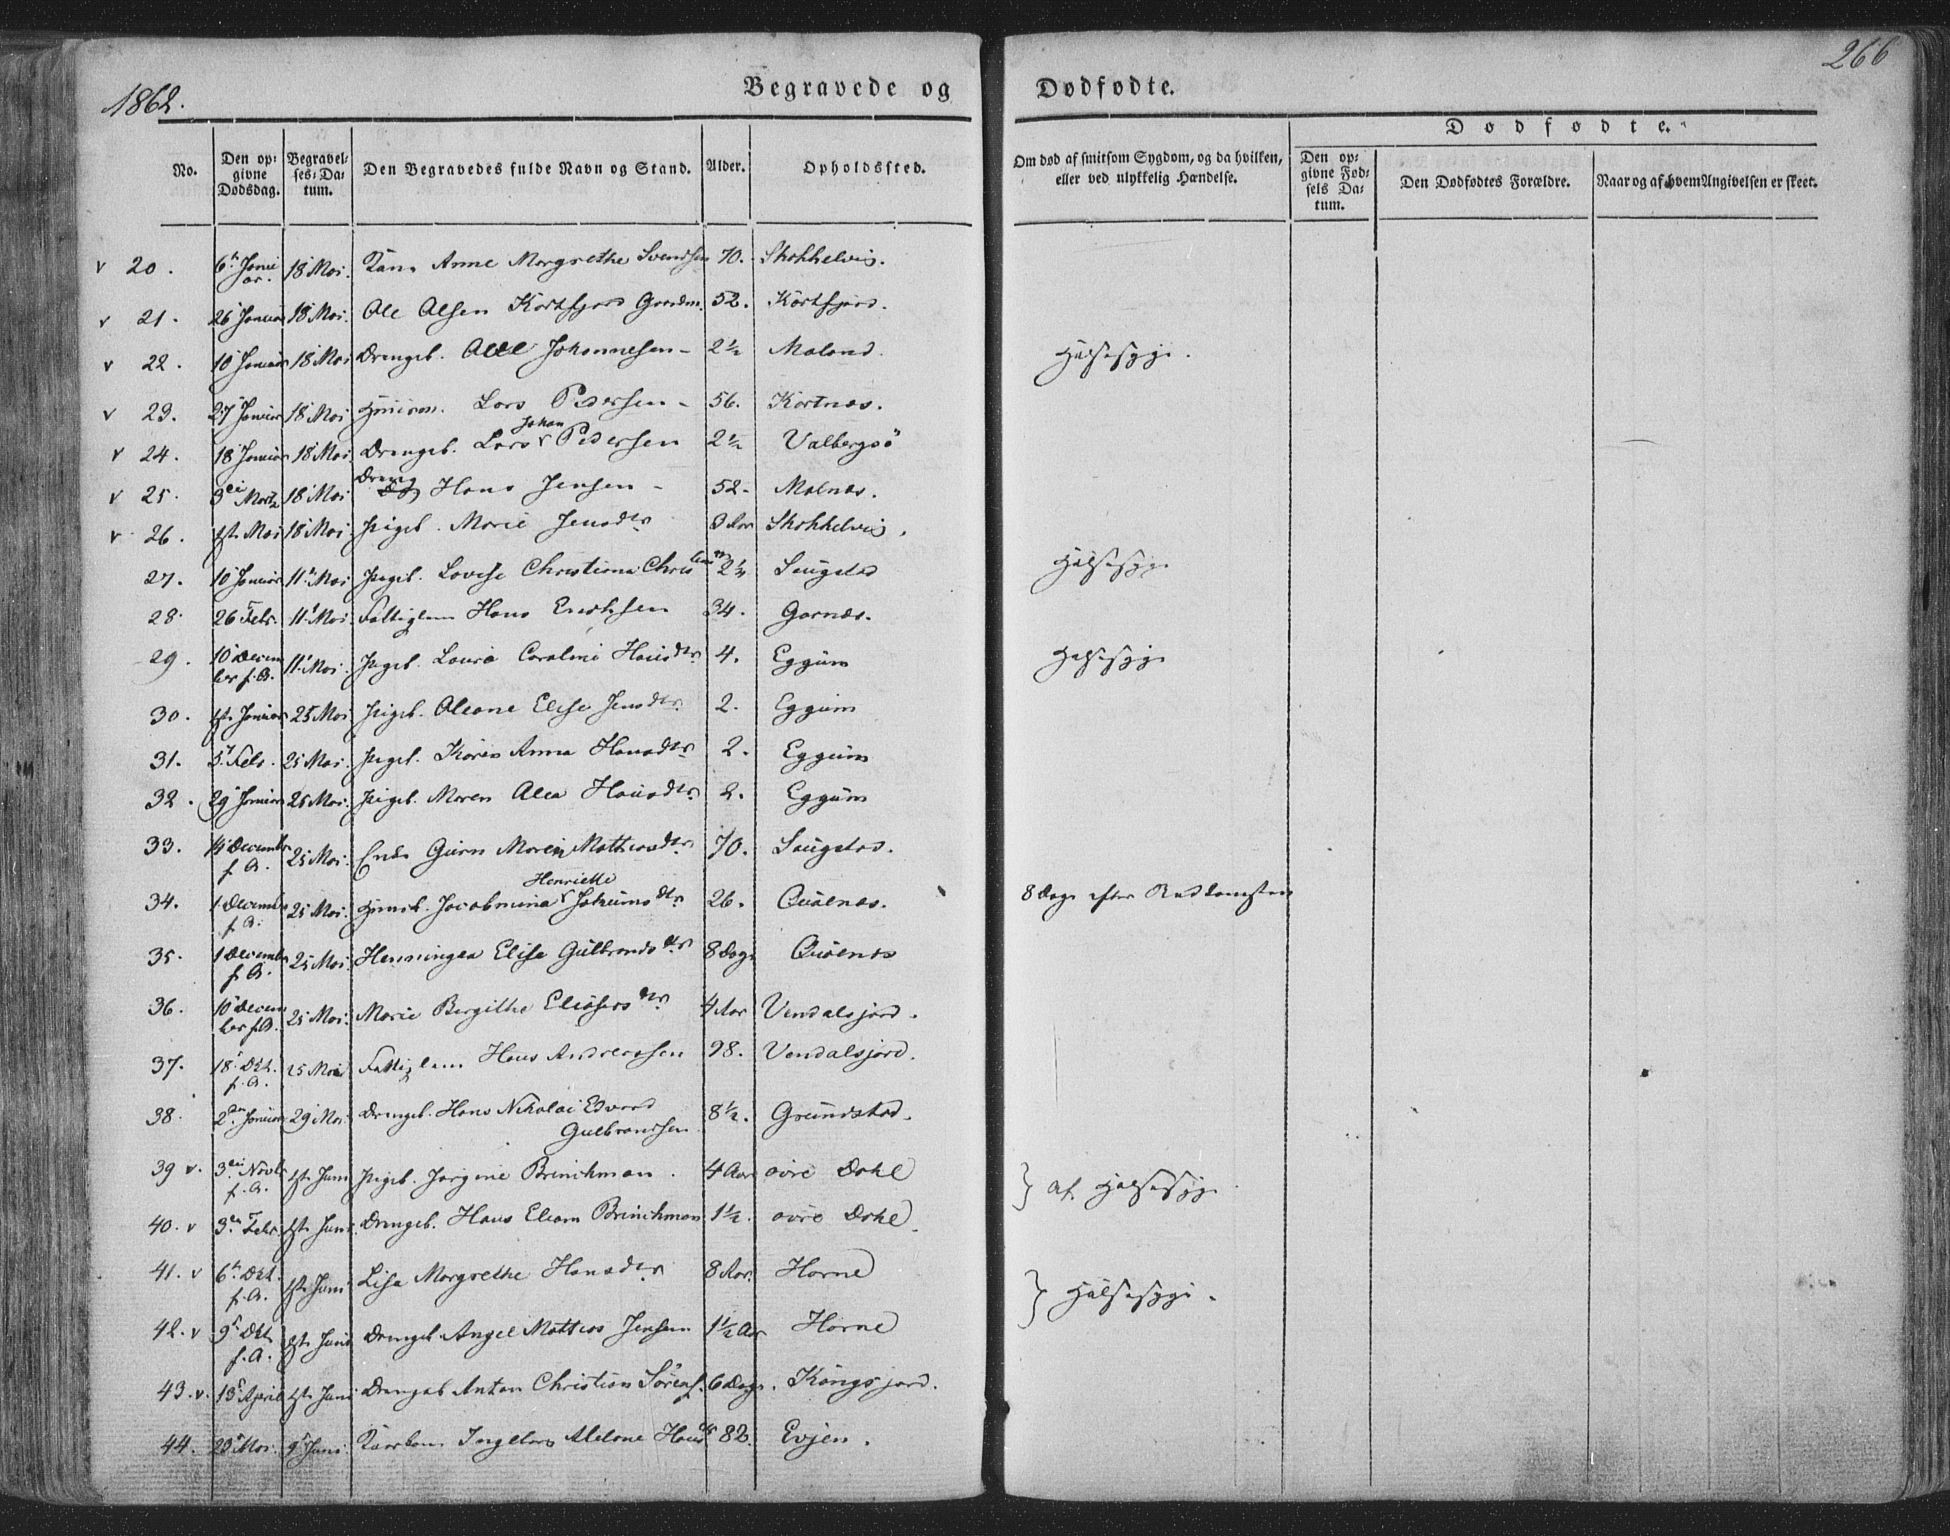 1862.
Begravede og
Dødfødte.
266
No.
Den opgivne Dødsdag.
Begravelses-Datum.
Den Begravedes fulde Navn og Stand.
Alder.
Opholdssted.
Om død af smitsom Sygdom, og da hvilken, eller ved ulykkelig Hændelse.
Dødfødte.
Den opgivne Fødsels Datum.
Den Dødfødtes Forældre.
Naar og af hvem Angivelsen er skeet.
v 20. 6t Januar. 18 Mai. Anne Margrethe Svendsen 70.
v 21. 26 Januar 18 Mai. Ole Olsen Kortfjord 52. Kortfjord.
v 22. 10 Januar 18 Mai Drengeb. Johannesen - 2½ Moland. Halssyge.
v 23. 27 Januar 18 Mai Lars Pedersen - 56. Kortnæs.
v 24. 18 Januar 18 Mai Drengeb. Lars Johan Pedersen 2½ Valbergsö
v 25. 3ei Marts 18 Mai Dreng Hans Jensen - 52. Molnæs.
v 26. 1ste Mai 18 Mai Pigeb. Marie Jensdtr 3 Aar
27. 10 Januar 11t Mai Pigeb. Lovise Christiana 2½ Saugstad Halssyge
28. 26 Febr. 11t Mai Fattiglem Hans 34. Garnæs.
29. 10 December f. A. 11t Mai. Pigeb. Laura Caroline Hansdtr 4. Eggum Halssyge
30. 1ste Januar 25 Mai Pigeb. Oleane Elise Jensdtr. 2. Eggum
31. 5t Febr. 25 Mai. Pigeb. Karen Anna Hansdtr 2. Eggum
32. 29 Januar 25 Mai. Pigeb. Maren Alea Hansdtr. 2. Eggum
33. 14 December f. A. 25 Mai. Enke Maren Mathiasdtr. 70. Saugstad.
34. 1 December f. A. 25 Mai. Jacobmina Henriette dtr. 26. 8 Dage efter Nedkomsten
35. 1 December f. A. 25 Mai. Henningea Elise Gulbrandsdtr 8 Dage
36. 10 December f. A. 25 Mai. Marie Birgithe Eliasersdtr 4 Aar Vendalsjord.
37. 18 Oct. f. A. 25 Mai Fattiglem Hans Andreassen 98. Vendalsjord.
38. 2den Januar 29 Mai. Drengeb. Hans Nikolai Edvard
Gulbrandsen 8½. Grundstad.
39 v. 3ei Novb. f. A. 1ste Juni Pigeb. Jørgine Brinchman. 4 Aar øvre Dahl } af Halssyge
40. v 3ei Febr. 1ste Juni Drengeb. Hans Brinchman 1½. øvre Dahl.
41. v 6t Oct. f. A. 1ste Juni Lisa Margrethe Hansdtr 8 Aar. Horne } Halssyge.
42. v 9 Oct. f. A. 1ste Juni Drengeb. Angel Mathias Jensen 1½ Aar Horne
43. v. 18 April 1ste Juni Drengeb Anton Christian Sørens. 6 Dage. Kongsjord.
44. 23 Mai. 9 Juni. 82. Evjen.